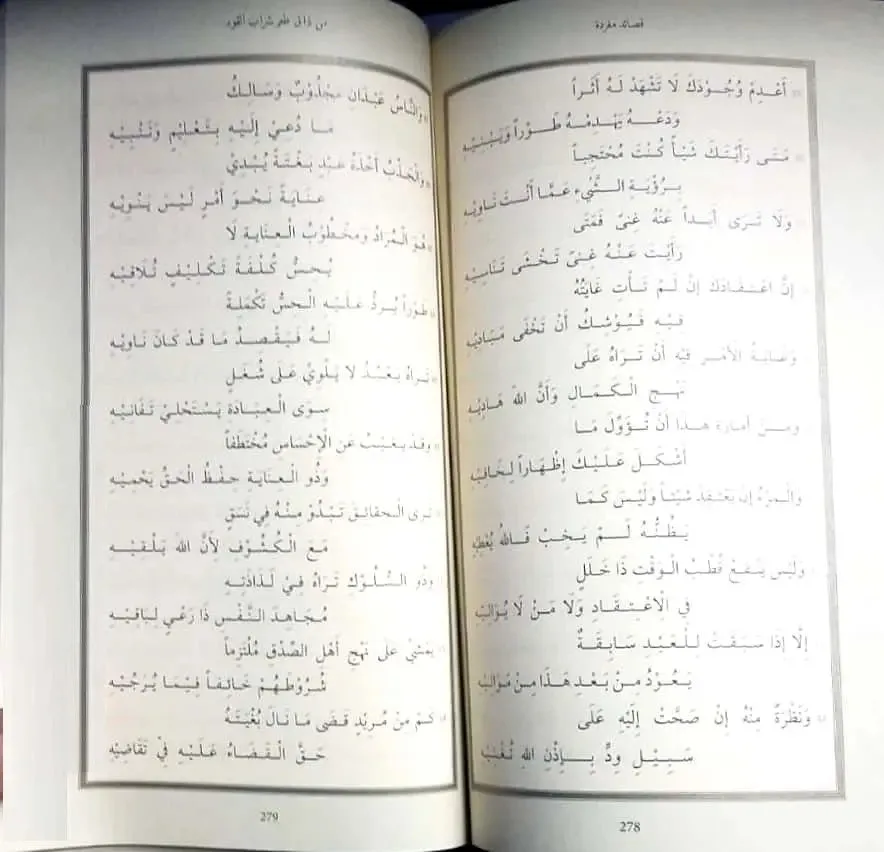 قصائد مفردة
أَعْدِمْ وُجُوْدَكَ لَا تَشْهَدْ لَهُ أَثَراً
وَدَعْـهُ يَهْدِمُـهُ طَـوْراً وَيَبْنِيْهِ
مَتَى رَأَيْتَكَ شَيْأً كُنْتَ مُحْتَجِباً
بِرُؤْيَةِ الشَّيْءِ عَمَّا أَنْتَ نَاوِيْهِ
وَلَا تَرَى أَبَداً عَنْهُ غِنىً فَمَتَى
رَأَيْتَ عَنْهُ غِنىً تَخْشَى تَنَاسِيْهِ
إِنَّ اعْتِقَادَكَ إِنْ لَمْ تَأْتِ غَايَتُهُ
فِيْهِ فَيُوْشِكُ أَنْ تَخْفَى مَبَادِيْهِ
وَغَايَةُ الأَمْرِ فِيْهِ أَنْ تَرَاهُ عَلَى
نَهْجِ الْكَمَالِ وَأَنَّ اللهَ هَادِيْهِ
وَمِنْ أَمَارَةِ هٰذَا أَنْ تُؤَوِّلَ مَا
أَشْكَلَ عَلَيْكَ إِظْهَاراً لِخَافِيْهِ
وَالْمَرْءُ إِنْ يَعْتَقِدْ شَيْئاً وَلَيْسَ كَمَا
يَظُنُّهُ لَمْ يَخِبْ فَاللهُ يُعْطِيْهِ
وَلَيْسَ يَنْفَعُ قُطْبُ الْوَقْتِ ذَا خَلَلٍ
فِي الِاعْتِقَادِ وَلَا مَنْ لَا يُوَالِيْهِ
إِلَّا إِذَا سَبَقَتْ لِلْعَبْدِ سَابِقَةٌ
يَعُوْدُ مِنْ بَعْدِ هَذَا مِنْ مَوَالِيْهِ
وَنَظْرَةٌ مِنْهُ إِنْ صَحَّتْ إِلَيْهِ عَلَى
سَبِيْلِ وِدٍّ بِإِذْنِ اللهِ تُغْنِيْهِ
278
من ذاق طعم شراب القوم
وَالنَّاسُ عَبْدَانِ مَجْذُوْبٌ وَسَالِكُ
مَا دُعِيْ إِلَيْهِ بِتَعْلِيْمٍ وَتَنْبِيْهِ
وَالْجَذْبُ أَخْذَةُ عَبْدٍ بَغْتَةً يُبْدِيْ
عِنَايَةً نَحْوَ أَمْرٍ لَيْسَ يَنْوِيْهِ
هُوَ الْمُرَادُ وَمَخْطُوْبُ الْعِنَايَةِ لَا
يُحِسُّ كُلْفَةَ تَكْلِيْفٍ تُلَاقِيْهِ
طَوْراً يُرَدُّ عَلَيْهِ الْحِسُّ تَكْمِلَةً
لَهُ فَيَقْصِدُ مَا قَدْ كَانَ نَاوِيْهِ
تَرَاهُ يَعْبُدُ لَا يَلْوِيْ عَلَى شُغُلٍ
سِوَى الْعِبَادَةِ يَسْتَحْلِيْ تَفَانِيْهِ
وَقَدْ يَغِيْبُ عَنِ الْإِحْسَاسِ مُخْتَطَفاً
وَذُو الْعِنَايَةِ حِفْظُ الْحَقِّ يَحْمِيْهِ
تَرَى الْحَقَائِقَ تَبْدُوْ مِنْهُ فِيْ نَسَقٍ
مَعَ الْكُشُوْفِ لِأَنَّ اللهَ يُلْقِيْهِ
وَذُو السُّلُوْكِ تَرَاهُ فِيْ لَذَاذَتِهِ
مُجَاهِدَ النَّفْسِ ذَا رَعْيٍ لِبَاقِيْهِ
يَمْشِيْ عَلَى نَهْجِ أَهْلِ الصِّدْقِ مُلْتَزِماً
شُرُوْطَهُمْ خَائِفاً فِيْمَا يُرَجِّيْهِ
كَمْ مِنْ مُرِيْدٍ قَضَى مَا نَالَ بُغْيَتَهُ
حَقَّ الْقَضَاءُ عَلَيْهِ فِيْ تَقَاضِيْهِ
279